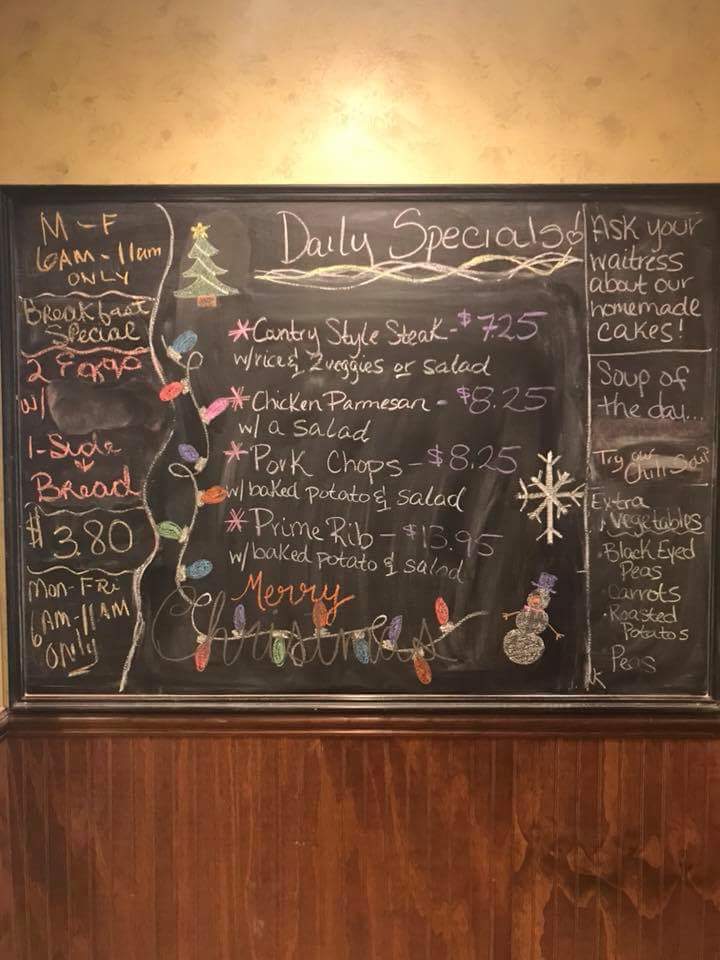 M-F
6AM-11am
ONLY
Breakfast
Special
2 Eggs
w/
1-Side
Bread
$3.80
Mon-Fri
6AM-11AM
Only
Daily Specials!
*Cantry Style Steak-$7.25
w/rice & 2 veggies or salad
*Chicken Parmesan - $8.25
w/ a salad
*Pork Chops-$8.25
w/baked potato & salad
*Prime Rib-$13.95
w/baked potato & salad
Merry
Christmas
Ask your
waitress
about our
homemade
cakes!
Soup of
the day...
Try our
Chili Soup
Extra
Vegetables
Black Eyed
Peas
Carrots
Roasted
Potatos
Peas